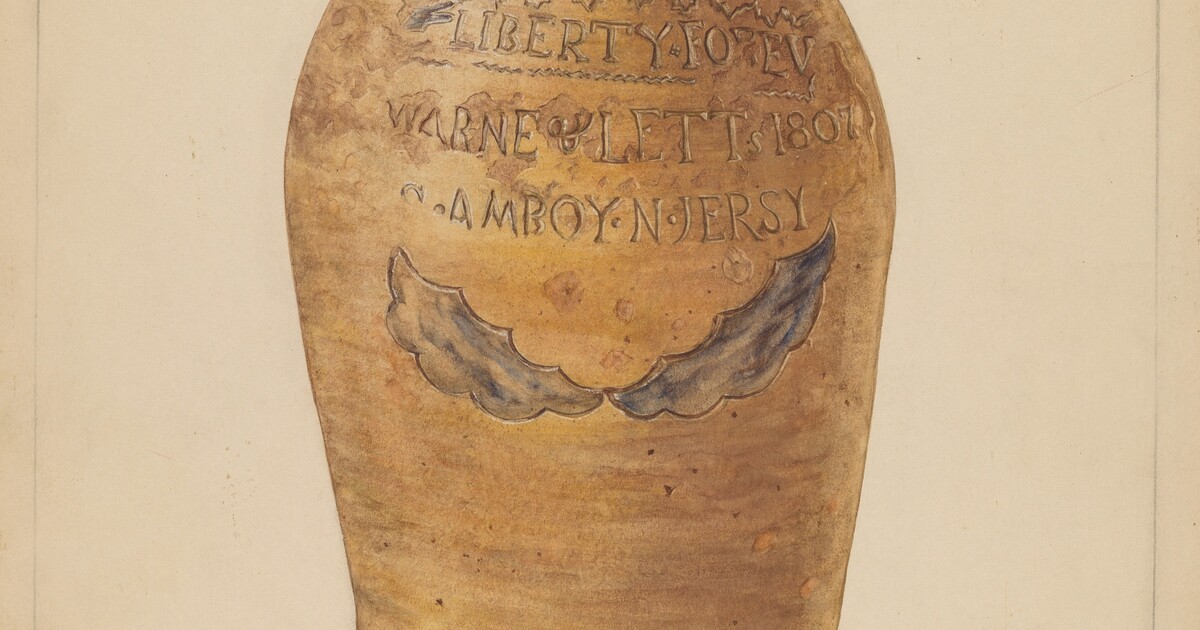 LIBERTY·FOREV
WARNE & LETTs 1807
S·AMBOY·N·JERSY